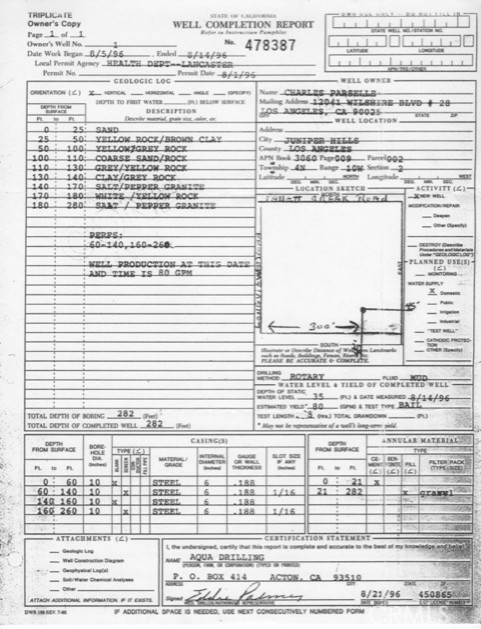 TRIPLICATE
Owner's Copy
Page 1 of 1
Owner's Well No. 1
Date Work Began 8/5/96 , Ended 8/14/96
Local Permit Agency HEALTH DEPT--LANCASTER
Permit No. Permit Date 8/1/96
STATE OF CALIFORNIA
WELL COMPLETION REPORT
Refer to Instruction Pamphlet
No. 478387
STATE WELL NO./STATION NO.
LATITUDE LONGITUDE
APN/TRS/OTHER
GEOLOGIC LOG
ORIENTATION (∠) X VERTICAL HORIZONTAL ANGLE (SPECIFY)
DEPTH TO FIRST WATER (Ft.) BELOW SURFACE
DEPTH FROM SURFACE
Ft. to Ft.
DESCRIPTION
Describe material, grain size, color, etc.
0 25 SAND
25 50 YELLOW ROCK/BROWN CLAY
50 100 YELLOW/GREY ROCK
100 110 COARSE SAND/ROCK
110 130 GREY/YELLOW ROCK
130 140 CLAY/GREY ROCK
140 170 SALT/PEPPER GRANITE
170 180 WHITE /YELLOW ROCK
180 280 SALT / PEPPER GRANITE
PERFS:
60-140,160-260
WELL PRODUCTION AT THIS DATE
AND TIME IS 80 GPM
TOTAL DEPTH OF BORING 282 (Feet)
TOTAL DEPTH OF COMPLETED WELL 282 (Feet)
WELL OWNER
Name CHARLES PARSELLS
Mailing Address 12041 WILSHIRE BLVD # 28
LOS ANGELES, CA 90025
CITY STATE ZIP
WELL LOCATION
Address
City JUNIPER HILLS
County LOS ANGELES
APN Book 3060 Page 009 Parcel 002
Township 4N Range 10W Section 2
Latitude NORTH Longitude WEST
DEG. MIN. SEC. DEG. MIN. SEC.
LOCATION SKETCH
EAST
300'
SOUTH
PLEASE BE ACCURATE & COMPLETE.
ACTIVITY (∠)
X NEW WELL
MODIFICATION/REPAIR
Deepen
Other (Specify)
DESTROY (Describe Procedures and Materials Under "GEOLOGIC LOG")
PLANNED USE(S) (∠)
MONITORING
WATER SUPPLY
X Domestic
Public
Irrigation
Industrial
"TEST WELL"
CATHODIC PROTECTION
OTHER (Specify)
DRILLING METHOD ROTARY FLUID MUD
WATER LEVEL & YIELD OF COMPLETED WELL
DEPTH OF STATIC WATER LEVEL 35 (Ft.) & DATE MEASURED 8/14/96
ESTIMATED YIELD* 80 (GPM) & TEST TYPE BAIL
TEST LENGTH (Hrs.) TOTAL DRAWDOWN (Ft.)
* May not be representative of a well's long-term yield.
CASING(S)
DEPTH FROM SURFACE
Ft. to Ft.
BORE-HOLE DIA. (Inches)
TYPE (∠)
BLANK SCREEN CONDUCTOR FILL PIPE
MATERIAL/ GRADE
INTERNAL DIAMETER (Inches)
GAUGE OR WALL THICKNESS
SLOT SIZE IF ANY (Inches)
0 60 10 x STEEL 6 .188
60 140 10 x STEEL 6 .188 1/16
140 160 10 x STEEL 6 .188
160 260 10 x STEEL 6 .188 1/16
DEPTH FROM SURFACE
Ft. to Ft.
ANNULAR MATERIAL
TYPE
CEMENT BENTONITE FILL FILTER PACK (TYPE/SIZE)
0 21 x
21 282 x gravel
ATTACHMENTS (∠)
Geologic Log
Well Construction Diagram
Geophysical Log(s)
Soil/Water Chemical Analyses
Other
ATTACH ADDITIONAL INFORMATION, IF IT EXISTS.
CERTIFICATION STATEMENT
I, the undersigned, certify that this report is complete and accurate to the best of my knowledge and belief.
NAME AQUA DRILLING
(PERSON, FIRM, OR CORPORATION) (TYPED OR PRINTED)
P. O. BOX 414 ACTON, CA 93510
ADDRESS CITY STATE ZIP
Signed Eddie Palmer 8/21/96 450865
WELL DRILLER/AUTHORIZED REPRESENTATIVE DATE SIGNED C-57 LICENSE NUMBER
DWR 188 REV. 7-90
IF ADDITIONAL SPACE IS NEEDED, USE NEXT CONSECUTIVELY NUMBERED FORM